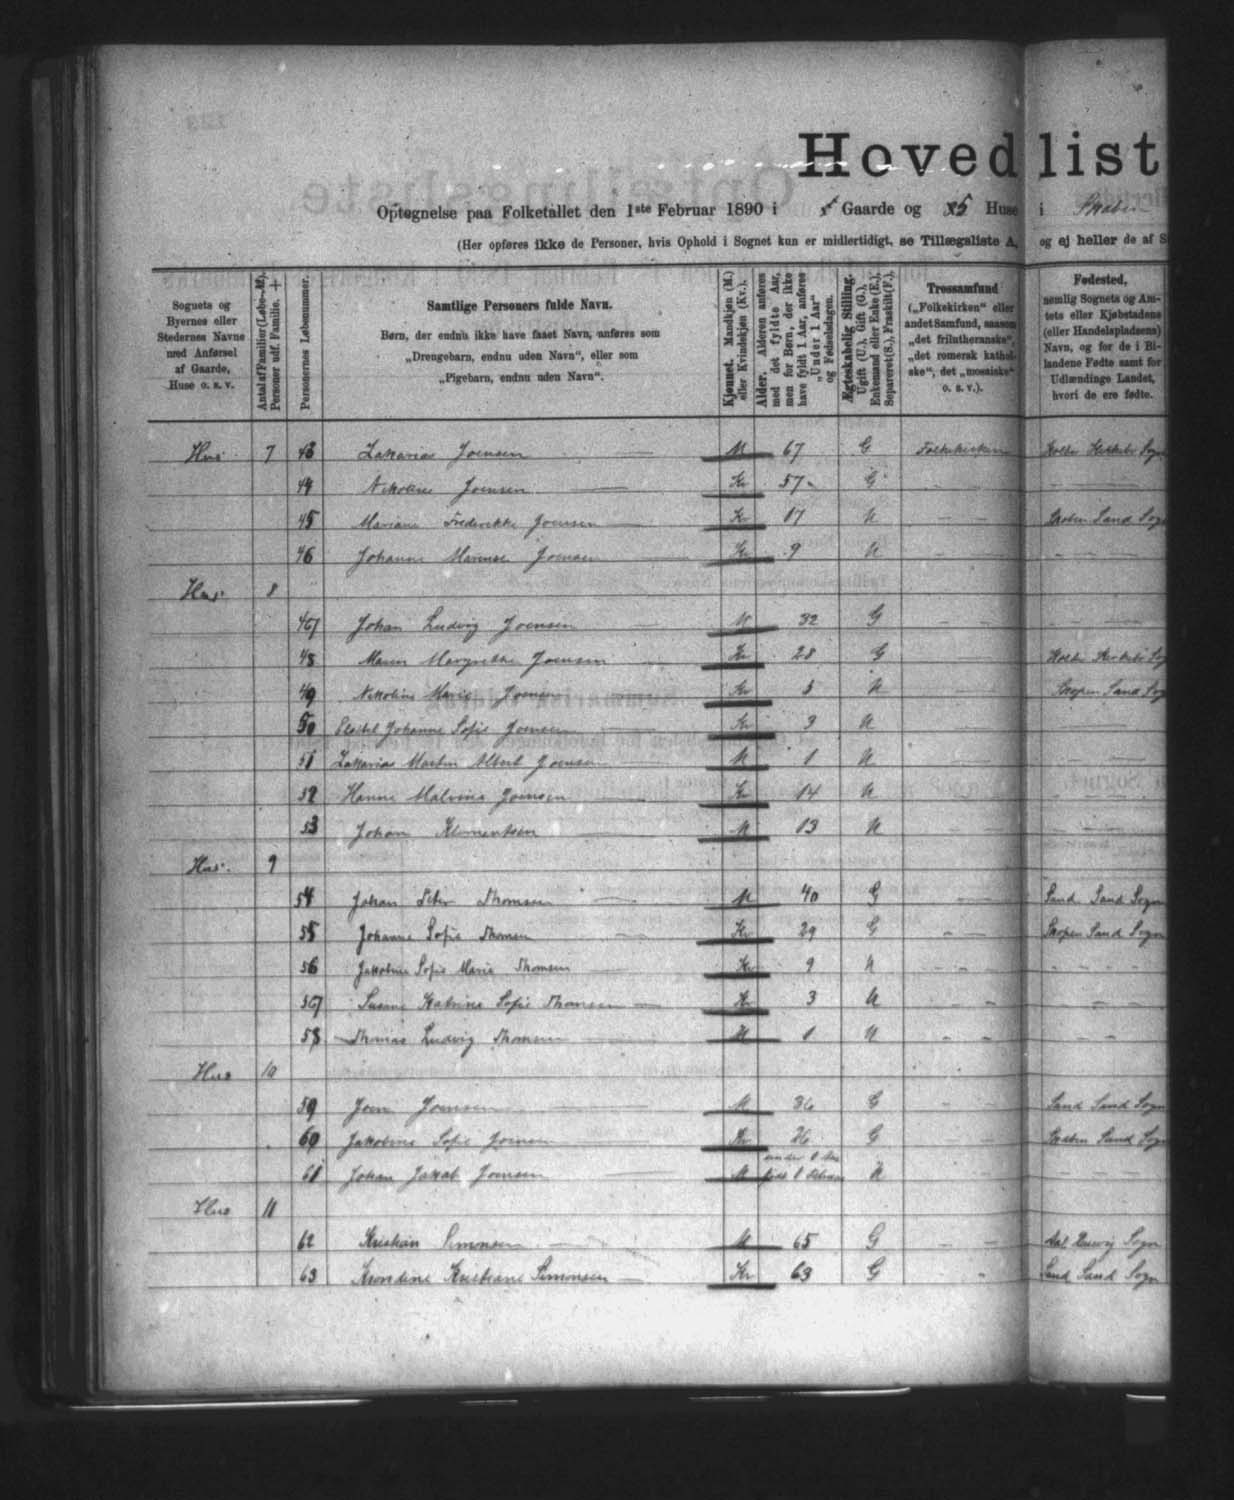 Hovedlist
Optegnelse paa Folketallet den 1ste Februar 1890 i Gaarde og 25 Huse i Skoben
(Her opføres ikke de Personer, hvis Ophold i Sognet kun er midlertidigt, se Tillægsliste A, og ej heller de af S
Sognets og
Byernes eller
Stedernes Navne
med Anførsel
af Gaarde,
Huse o. s. v.
Antal af Familier (Løbe-№).
Personer udf. Familie. +
Personernes Løbenummer.
Samtlige Personers fulde Navn.
Børn, der endnu ikke have faaet Navn, anføres som
„Drengebarn, endnu uden Navn“, eller som
„Pigebarn, endnu uden Navn“.
Kjønnet. Mandkjøn (M.)
eller Kvindekjøn (Kv.).
Alder. Alderen anføres
med det fyldte Aar,
men for Børn, der ikke
have fyldt 1 Aar, anføres
„Under 1 Aar“
og Fødselsdagen.
Ægteskabelig Stilling.
Ugift (U.), Gift (G.),
Enkemand eller Enke (E.),
Separeret (S.), Fraskilt (F.),
Trossamfund
(„Folkekirken“ eller
andet Samfund, saasom
„det frilutheranske“,
„det romersk kathol-
ske“, det „mosaiske“
o. s. v.).
Fødested,
nemlig Sognets og Am-
tets eller Kjøbstadens
(eller Handelspladsens)
Navn, og for de i Bi-
landene Fødte samt for
Udlændinge Landet,
hvori de ere fødte.
Hus 7 43 Zakarias Joensen M 67 G Folkekirken Sogn
44 Nikoline Joensen Kv 57 G
45 Mariane Frederikke Joensen Kv 17 U Skoben Sand Sogn
46 Johanne Joensen Kv 9 U
Hus 8
47 Johan Ludvig Joensen M 32 G
48 Maren Margrethe Joensen Kv 28 G
49 Nikoline Marie Joensen Kv 5 U Skopen Sand Sogn
50 Johanne Sofie Joensen Kv 3 U
51 Zakarias Martin Albert Joensen M 1 U
52 Hanne Malvina Joensen Kv 14 U
53 Johan Klementsen M 13 U
Hus 9
54 Johan Peter Thomsen M 40 G Sand Sand Sogn
55 Johanne Sofie Thomsen Kv 29 G Skopen Sand Sogn
56 Jakobine Sofie Marie Thomsen Kv 9 U
57 Susanne Katrine Sofie Thomsen Kv 3 U
58 Thomas Ludvig Thomsen M 1 U
Hus 10
59 Joen Joensen M 36 G Sand Sand Sogn
60 Jakobine Sofie Joensen Kv 26 G Skoben Sand Sogn
61 Johan Jakob Joensen M under 1 Aar født U
Hus 11
62 Kristian Simonsen M 65 G Sogn
63 Kristiane Simonsen Kv 63 G Sand Sand Sogn